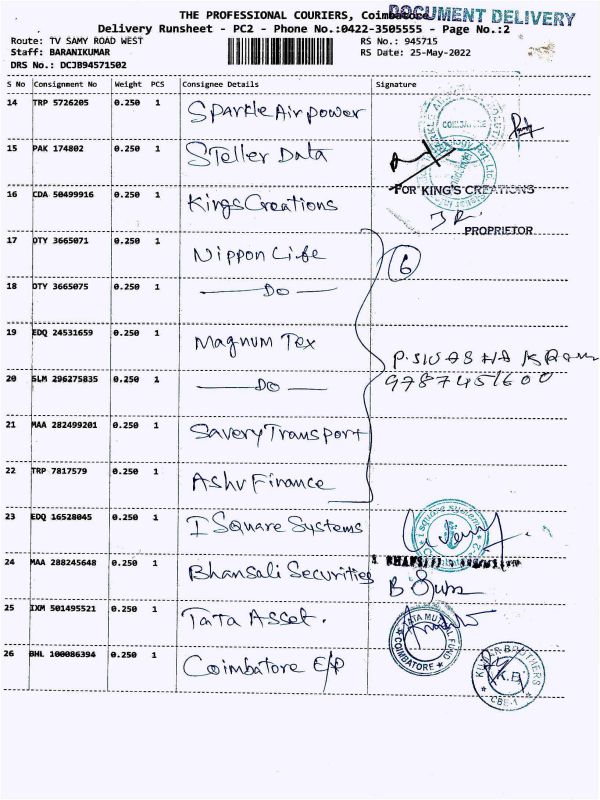 THE PROFESSIONAL COURIERS, Coimbatore
DOCUMENT DELIVERY
Delivery Runsheet - PC2 - Phone No.:0422-3505555 - Page No.:2
Route: TV SAMY ROAD WEST RS No.: 945715
Staff: BARANIKUMAR RS Date: 25-May-2022
DRS No.: DCJB94571502
S No Consignment No Weight PCS Consignee Details Signature
14 TRP 5726205 0.250 1 Sparkle Air power
COIMBATORE
15 PAK 174802 0.250 1 Steller Data
16 CDA 50499916 0.250 1 Kings Creations
FOR KING'S CREATIONS
PROPRIETOR
17 OTY 3665071 0.250 1 Nippon Life
6
18 OTY 3665075 0.250 1 Do
19 EDQ 24531659 0.250 1 Magnum Tex
20 SLM 296275835 0.250 1 Do
9787451600
21 MAA 282499201 0.250 1 Savery Transport
22 TRP 7817579 0.250 1 Ashv Finance
23 EDQ 16528045 0.250 1 I Square Systems
i square systems
24 MAA 288245648 0.250 1 Bhansali Securities
25 IXM 501495521 0.250 1 Tata Asset.
TATA MUTUAL FUND
COIMBATORE
26 BHL 100086394 0.250 1 Coimbatore E/P
KUMAR BROTHERS
K.B.
CBE-1